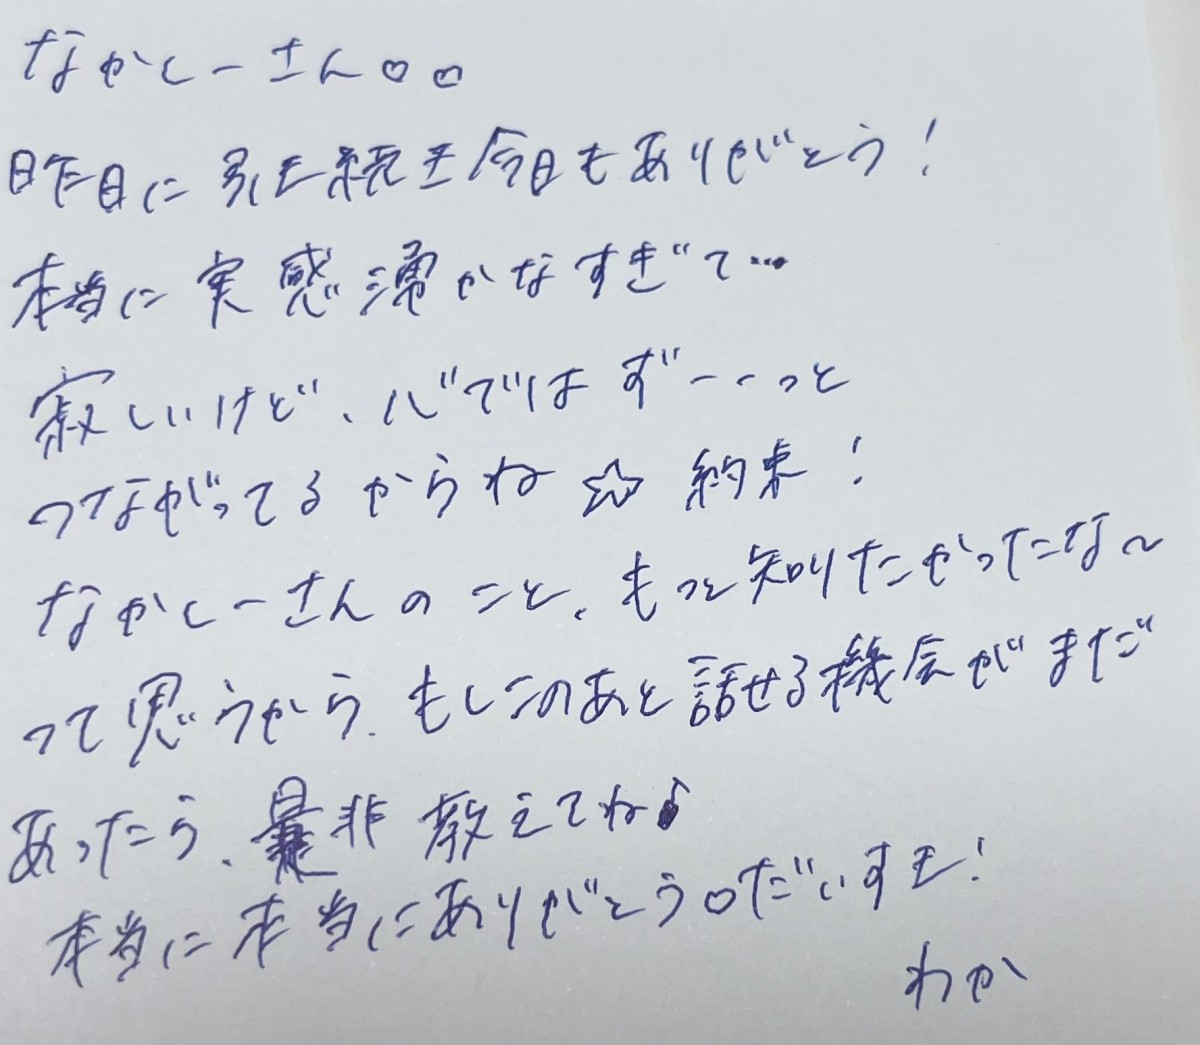 なかしーさん♡♡
昨日に引き続き今日もありがとう!
本当に実感湧かなすぎて…
寂しいけど、心ではずーーっと
つながってるからね☆ 約束!
なかしーさんのこと、もっと知りたかったな〜
って思うから、もしこのあと話せる機会がまだ
あったら、是非教えてね♪
本当に本当にありがとう♡だいすき!
わか